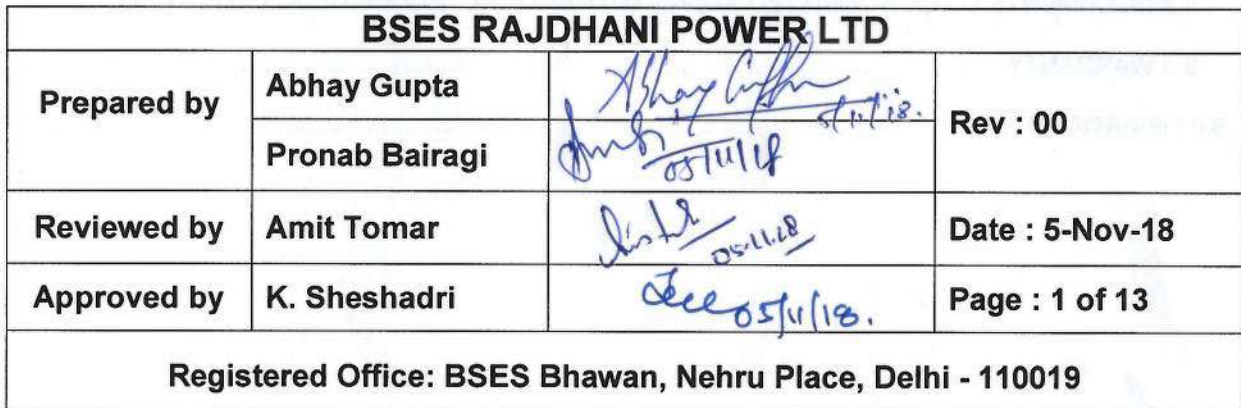 BSES RAJDHANI POWER LTD
Prepared by
Abhay Gupta
Abhay Gupta
5/11/18.
Rev : 00
Pronab Bairagi
05/11/18
Reviewed by
Amit Tomar
05.11.18
Date : 5-Nov-18
Approved by
K. Sheshadri
05/11/18.
Page : 1 of 13
Registered Office: BSES Bhawan, Nehru Place, Delhi - 110019